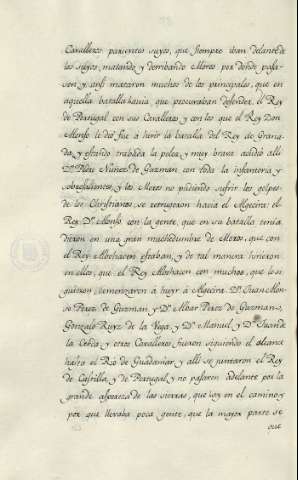 Cavalleros parientes suyos, que siempre iban delante de
los suyos, matando y derribando Moros por donde pasa-
van, y ansi mataron muchos de los principales, que en
aquella batalla havia, que procuraban defender, el Rey
de Portugal con sus Cavalleros y con los que el Rey Don
Alonso le dió fue a herir la batalla del Rey de Grana-
da, y estando trabada la pelea y muy brava acudió alli
D.n Pedro Nuñez de Guzman con toda la infanteria y
y los Moros no pudiendo sufrir los golpes
de los Christianos se retrugeron hacia el Algecira: el
Rey D.n Alonso con la gente, que en su batalla tenia,
dieron en una gran muchedumbre de Moros, que con
el Rey Albohacen estaban, y de tal manera hirieron
en ellos, que el Rey Albohacen con muchos, que lo si-
guieron, comenzaron à huyr à Algecira. D.n Juan Alon-
so Perez de Guzman, y D.n Albar Perez de Guzman,
Gonzalo Ruyz de la Vega, y D.n Manuel, y D.n Juan de
la Cerda, y otros Cavalleros fueron siguiendo el alcance
hasta el Rio de Guadamar, y alli se juntaron el Rey
de Castilla, y de Portugal, y no pasaron adelante por la
grande aspereza de las sierras, que hay en el camino, y
por que llevaba poca gente, que la mayor parte se
que